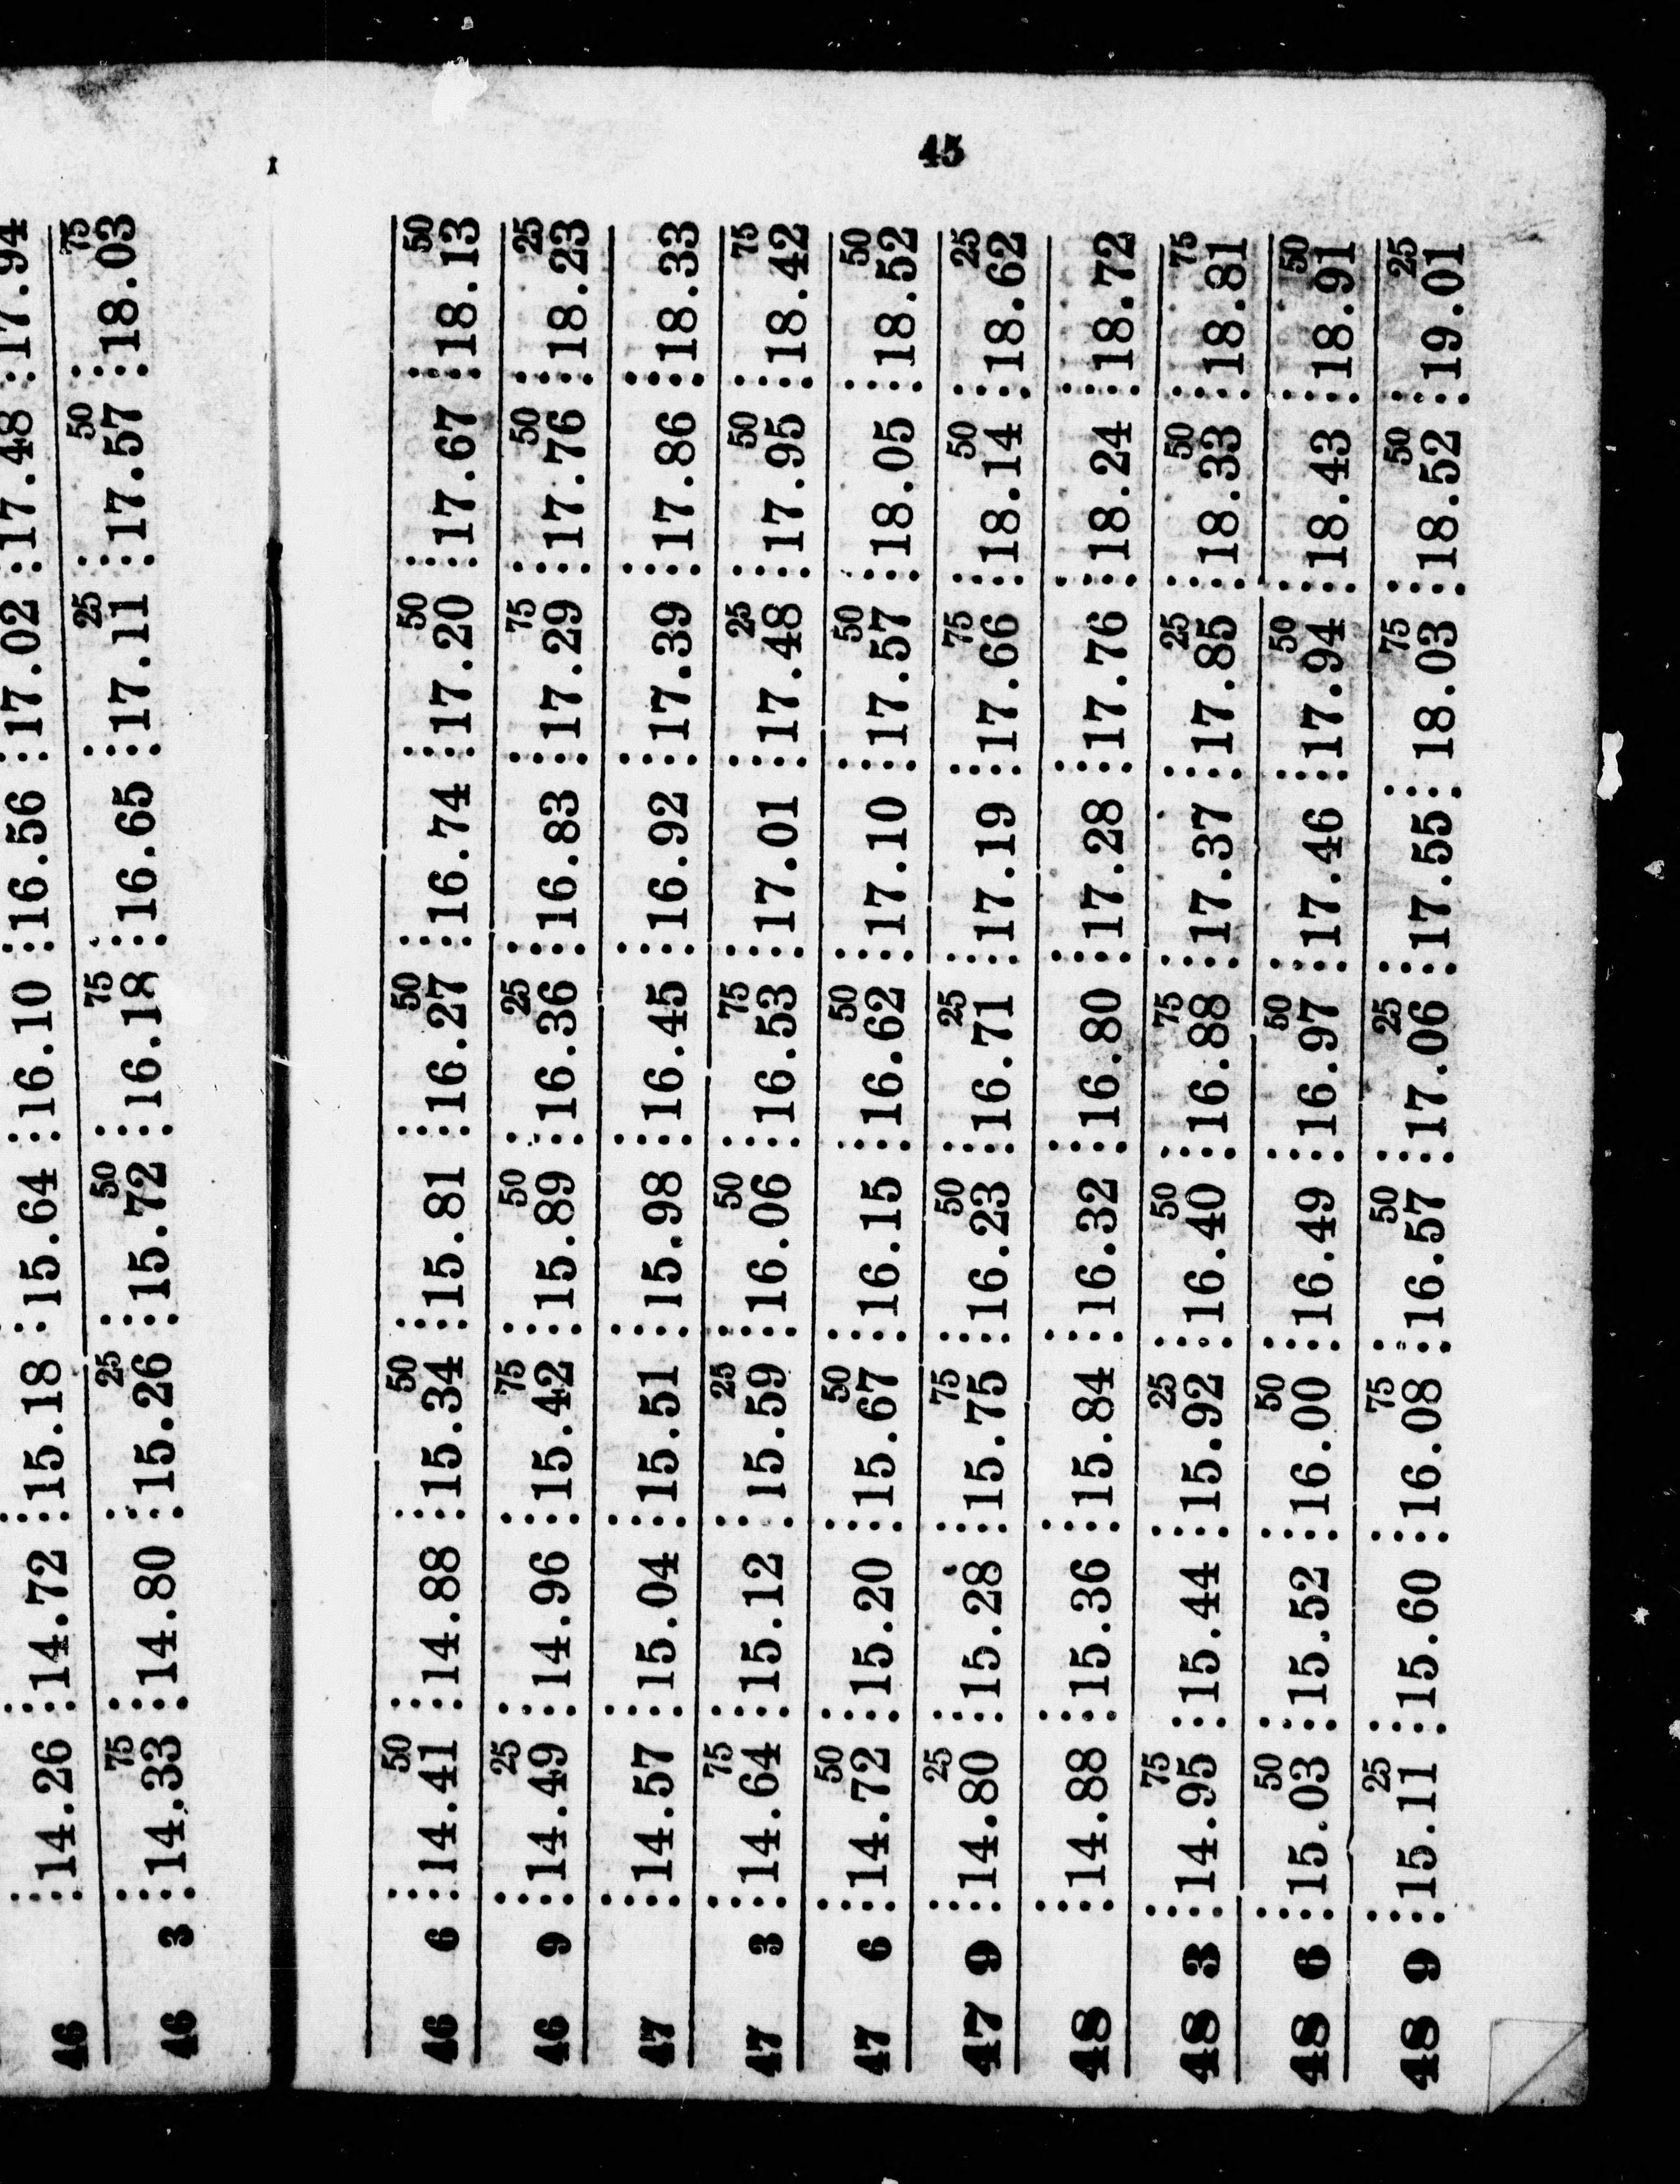 46 :14.26 :14.72 :15.18 :15.64 :16.10 :16.56 :17.02 :17.48 :17.94
75 25 50 75 25 50 75
46 3 :14.33 :14.80 :15.26 :15.72 :16.18 :16.65 :17.11 :17.57 :18.03
45
50 50 50 50 50
46 6 :14.41 :14.88 :15.34 :15.81 :16.27 :16.74 :17.20 :17.67 :18.13
25 75 50 25 75 50 25
46 9 :14.49 :14.96 :15.42 :15.89 :16.36 :16.83 :17.29 :17.76 :18.23
47 :14.57 :15.04 :15.51 :15.98 :16.45 :16.92 :17.39 :17.86 :18.33
75 25 50 75 25 50 75
47 3 :14.64 :15.12 :15.59 :16.06 :16.53 :17.01 :17.48 :17.95 :18.42
50 50 50 50 50
47 6 :14.72 :15.20 :15.67 :16.15 :16.62 :17.10 :17.57 :18.05 :18.52
25 75 50 25 75 50 25
47 9 :14.80 :15.28 :15.75 :16.23 :16.71 :17.19 :17.66 :18.14 :18.62
48 :14.88 :15.36 :15.84 :16.32 :16.80 :17.28 :17.76 :18.24 :18.72
75 25 50 75 25 50 75
48 3 :14.95 :15.44 :15.92 :16.40 :16.88 :17.37 :17.85 :18.33 :18.81
50 50 50 50 50
48 6 :15.03 :15.52 :16.00 :16.49 :16.97 :17.46 :17.94 :18.43 :18.91
25 75 50 25 75 50 25
48 9 :15.11 :15.60 :16.08 :16.57 :17.06 :17.55 :18.03 :18.52 :19.01